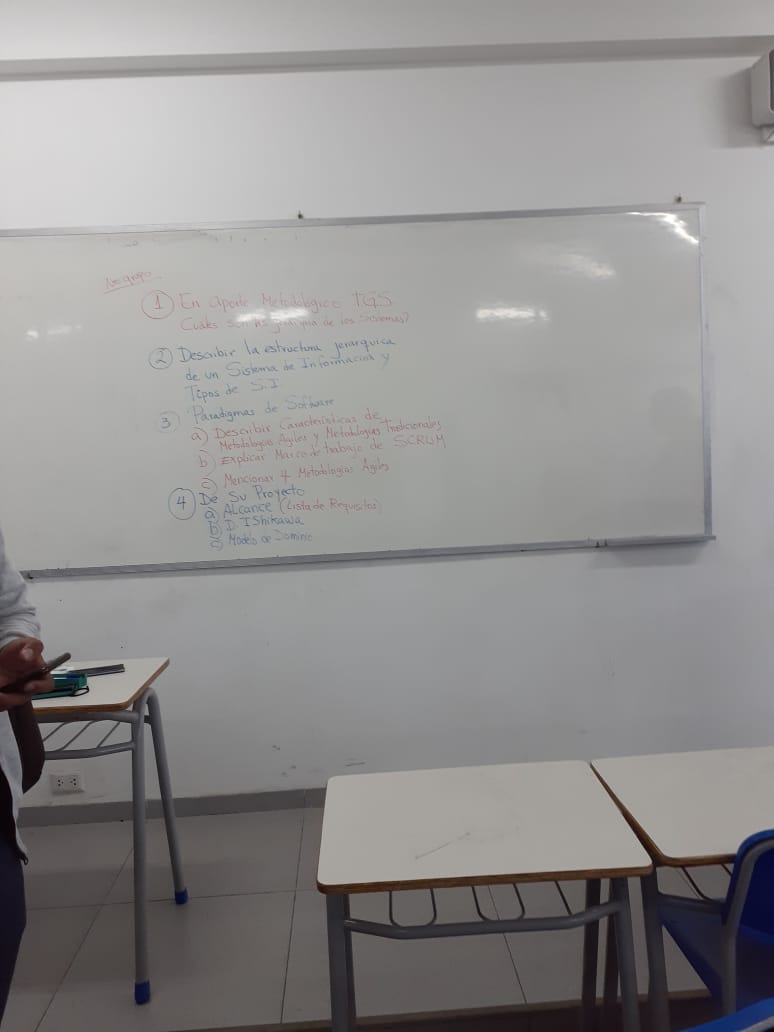 Nº grupo
① En aporte Metodológico TGS
Cuáles son las jerarquia de los Sistemas?
② Describir la estructura jerarquica
de un Sistema de Información y
Tipos de S.I
③ Paradigmas de Software
a) Describir Características de
Metodologías Agiles y Metodologías Tradicionales
b) Explicar Marco de trabajo de SCRUM
c) Mencionar 4 Metodologías Agiles
④ De Su Proyecto
a) Alcance (Lista de Requisitos)
b) D. IShikawa
c) Modelo de Dominio